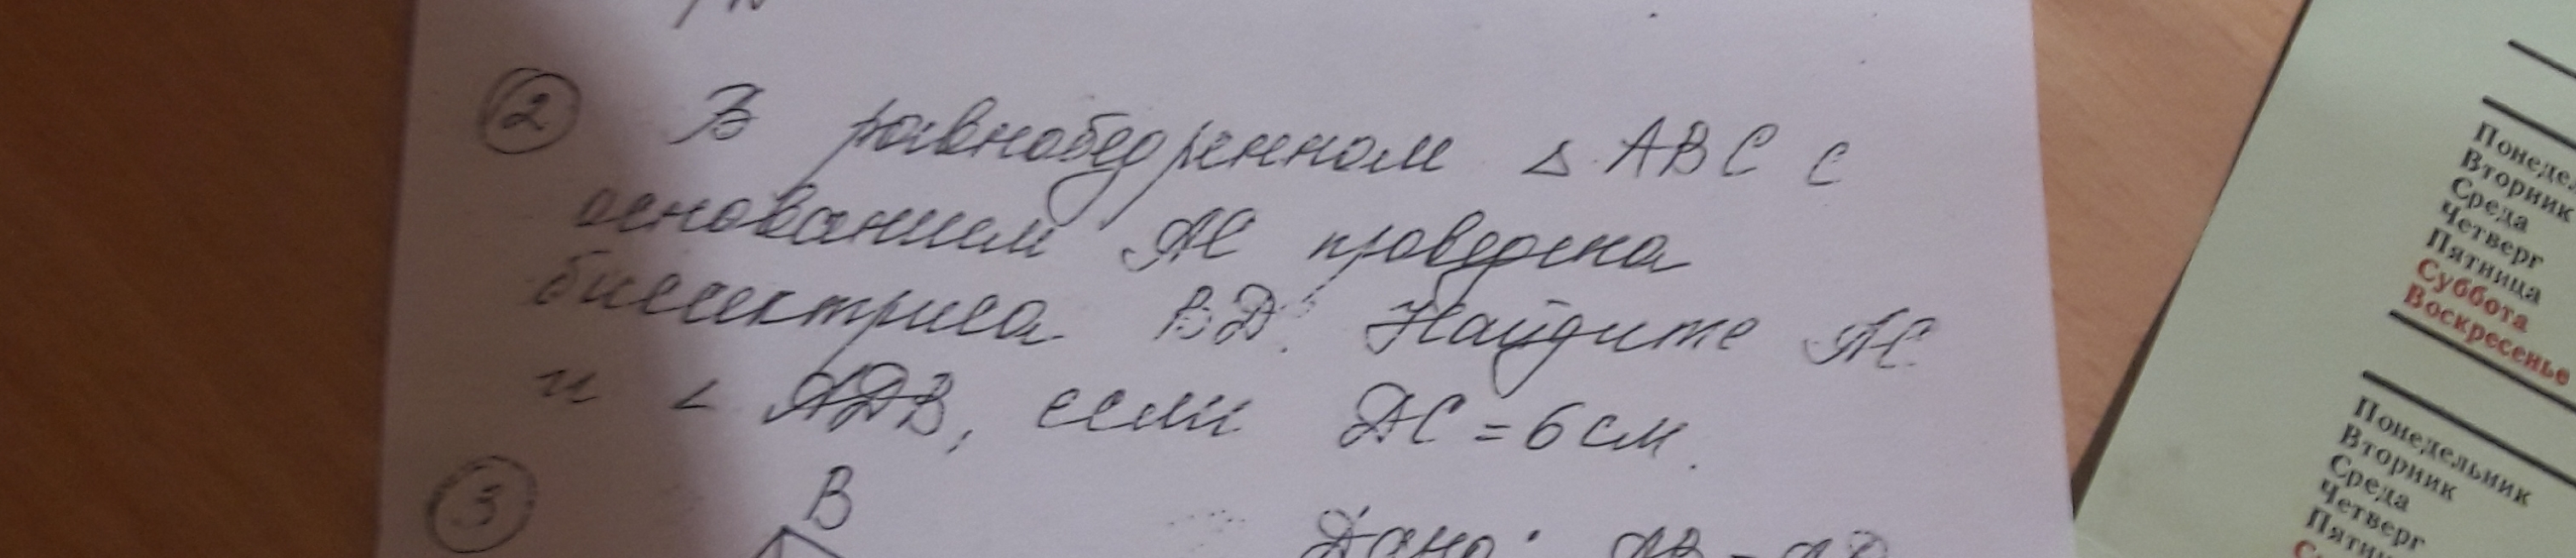 2 В равнобедренном △ ABC с
основанием АС проведена
биссектриса ВД. Найдите АС
и ∠ АДВ, если ДС = 6 см.
3
В
Дано:
Вторник
Среда
Четверг
Пятница
Суббота
Воскресенье
Понедельник
Вторник
Среда
Четверг